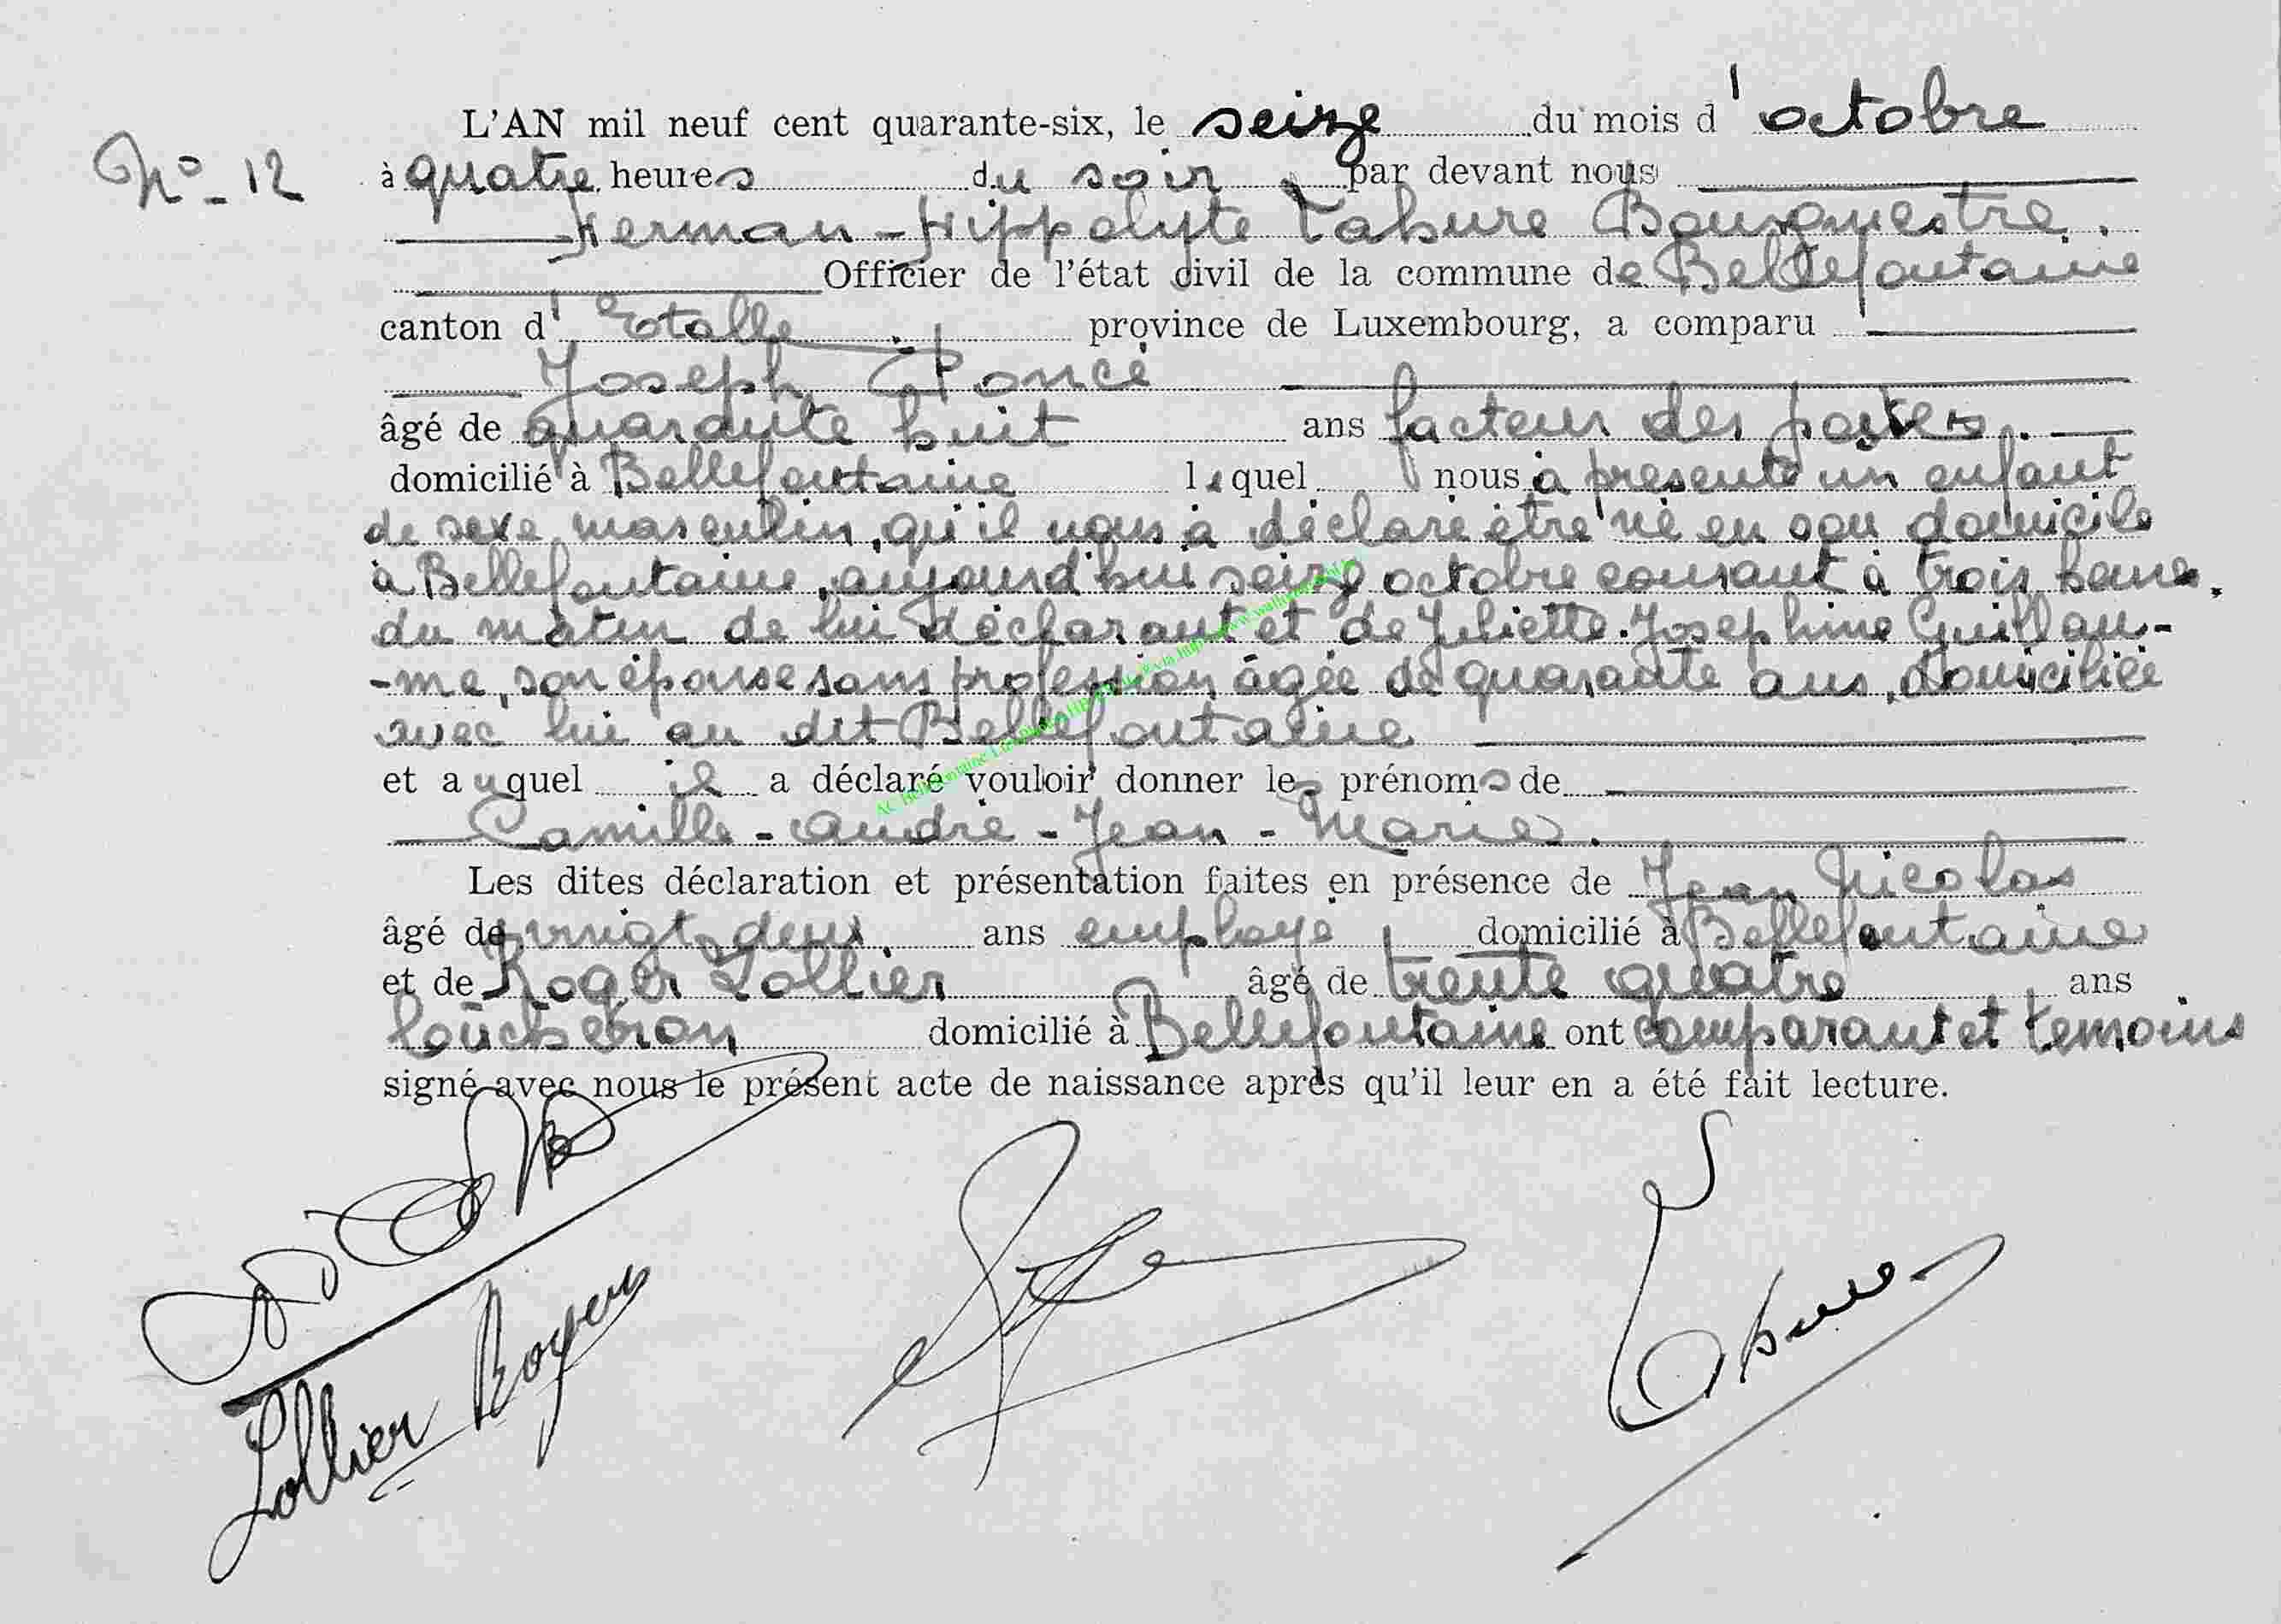 L'AN mil neuf cent quarante-six, le seize du mois d'octobre
N° - 12 à quatre heures du soir, par devant nous
Herman-Hippolyte Labure Bourgmestre.
Officier de l'état civil de la commune de Bellefontaine
canton d'Etalle. province de Luxembourg, a comparu
Joseph Poncé
âgé de quarante huit ans facteur des postes.
domicilié à Bellefontaine lequel nous a présenté un enfant
de sexe masculin, qu'il nous à déclaré être né en son domicile
à Bellefontaine, aujourd'hui seize octobre courant à trois heures
du matin de lui déclarant et de Juliette-Josephine Guillau-
-me, son épouse sans profession, âgée de quarante ans, domiciliée
avec lui au dit Bellefontaine
et auquel il a déclaré vouloir donner les prénoms de
Camille - André - Jean - Marie.
Les dites déclaration et présentation faites en présence de Jean Nicolas
âgé de vingt deux ans employé domicilié à Bellefontaine
et de Roger Lollier âgé de trente quatre ans
domicilié à Bellefontaine ont comparant et témoins
signé avec nous le présent acte de naissance après qu'il leur en a été fait lecture.
Lollier Roger